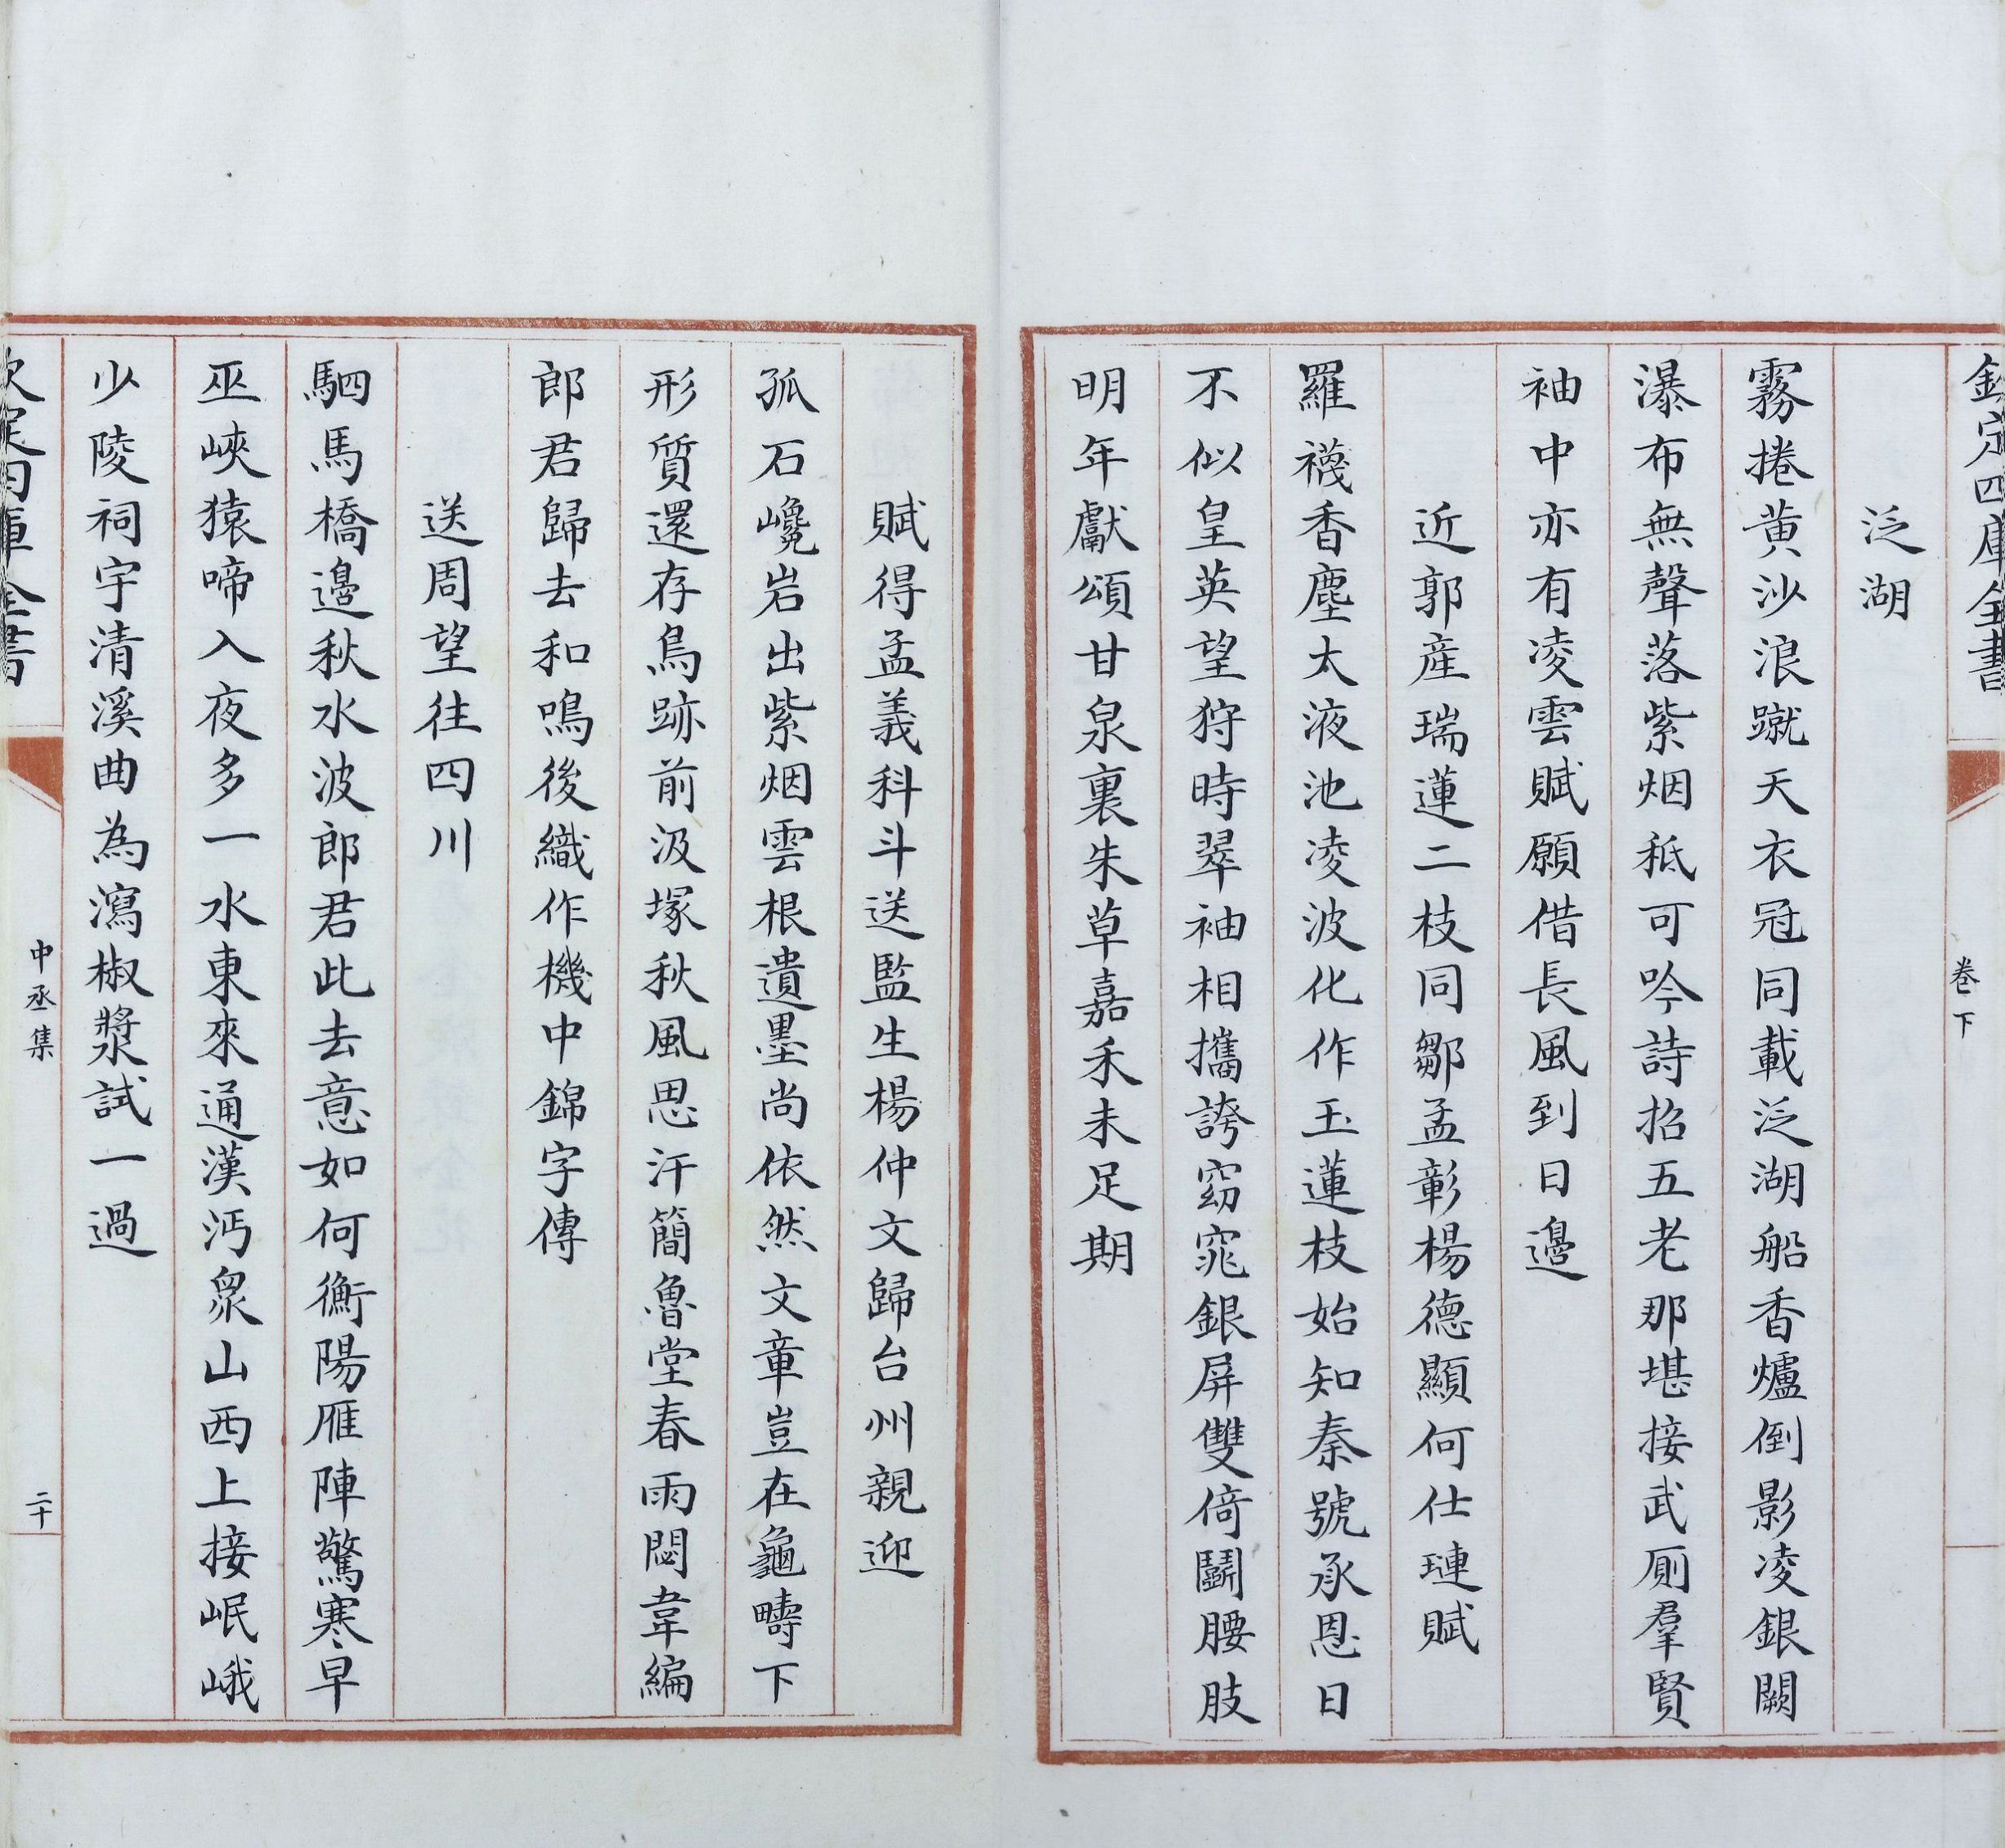 欽定四庫全書
卷下
泛湖
霧捲黄沙浪蹴天衣冠同載泛湖船香爐倒影凌銀闕
瀑布無聲落紫烟秪可吟詩招五老那堪接武厠羣賢
袖中亦有凌雲賦願借長風到日邉
近郭産瑞蓮二枝同鄒孟彰楊德顯何仕璉賦
羅襪香塵太液池凌波化作玉蓮枝始知秦號承恩日
不似皇英望狩時翠袖相攜誇窈窕銀屏雙倚鬭腰肢
明年獻頌甘泉裏朱草嘉禾未足期
賦得孟義科斗送監生楊仲文歸台州親迎
孤石巉岩出紫烟雲根遺墨尚依然文章豈在龜疇下
形質還存鳥跡前汲塚秋風思汗簡魯堂春雨閟韋編
郎君歸去和鳴後織作機中錦字傳
送周望往四川
駟馬橋邉秋水波郎君此去意如何衡陽雁陣驚寒早
巫峽猿啼入夜多一水東來通漢沔衆山西上接岷峨
少陵祠宇清溪曲為瀉椒漿試一過
欽定四庫全書
中丞集
二十